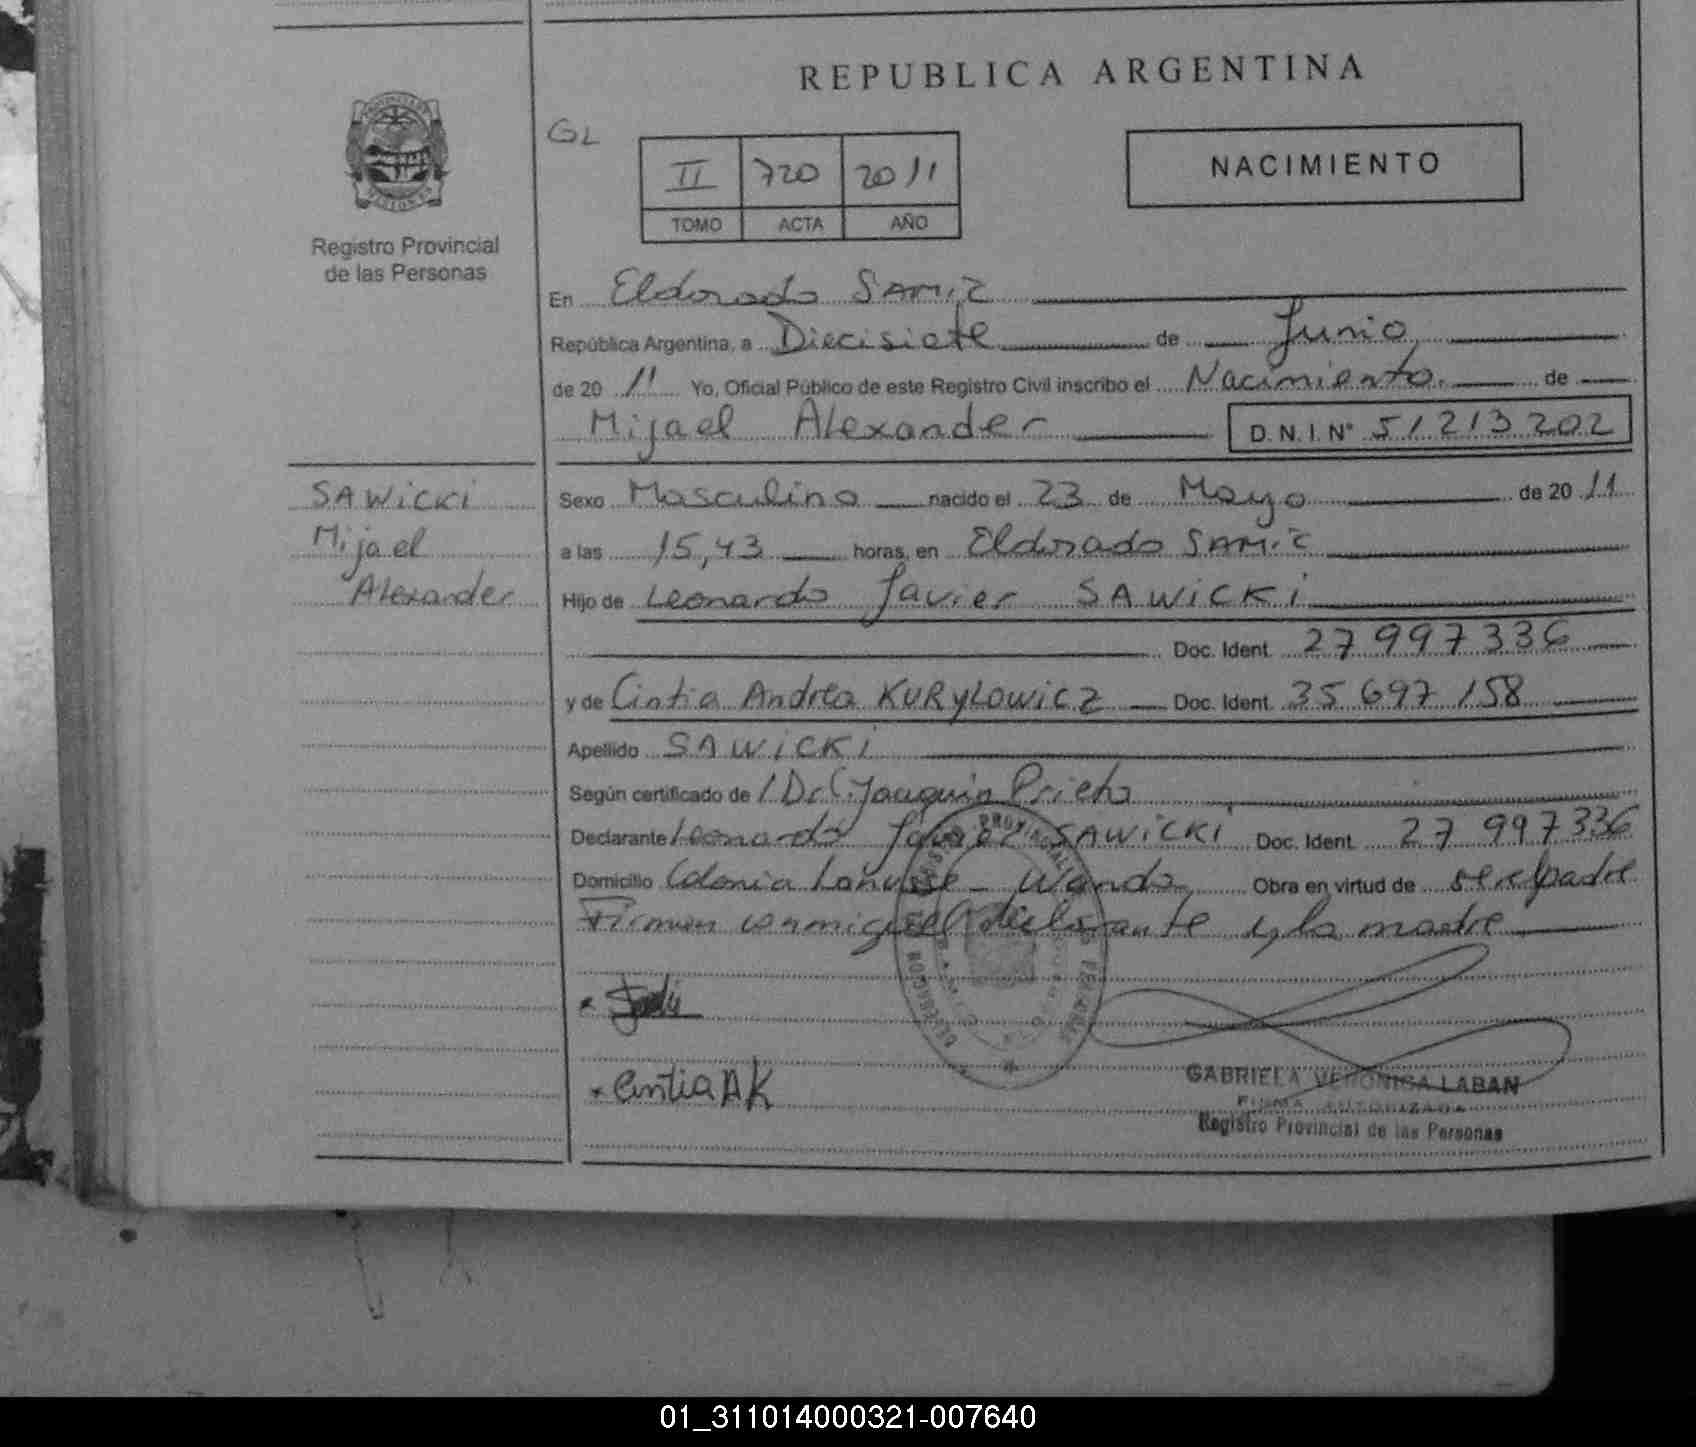 REPUBLICA ARGENTINA
GL
II 720 2011
TOMO ACTA AÑO
NACIMIENTO
Registro Provincial
de las Personas
En Eldorado SAMIC
República Argentina, a Diecisiete de Junio
de 20 11 Yo, Oficial Público de este Registro Civil inscribo el Nacimiento. de
Mijael Alexander D.N.I. N° 51213202
SAWICKI
Mijael
Alexander
Sexo Masculino nacido el 23 de Mayo de 20 11
a las 15,43 horas, en Eldorado SAMIC
Hijo de Leonardo Javier SAWICKI
Doc. Ident. 27997336
y de Cintia Andrea KURYLOWICZ Doc. Ident. 35697158
Apellido SAWICKI
Según certificado de Joaquin Prieto
Declarante Leonardo Javier SAWICKI Doc. Ident. 27997336
Domicilio Colonia Lanusse - Wanda Obra en virtud de ser el padre
Firman conmigo el declarante y la madre
Cintia AK
GABRIELA VERONICA LABAN
FIRMA AUTORIZADA
Registro Provincial de las Personas
01_311014000321-007640